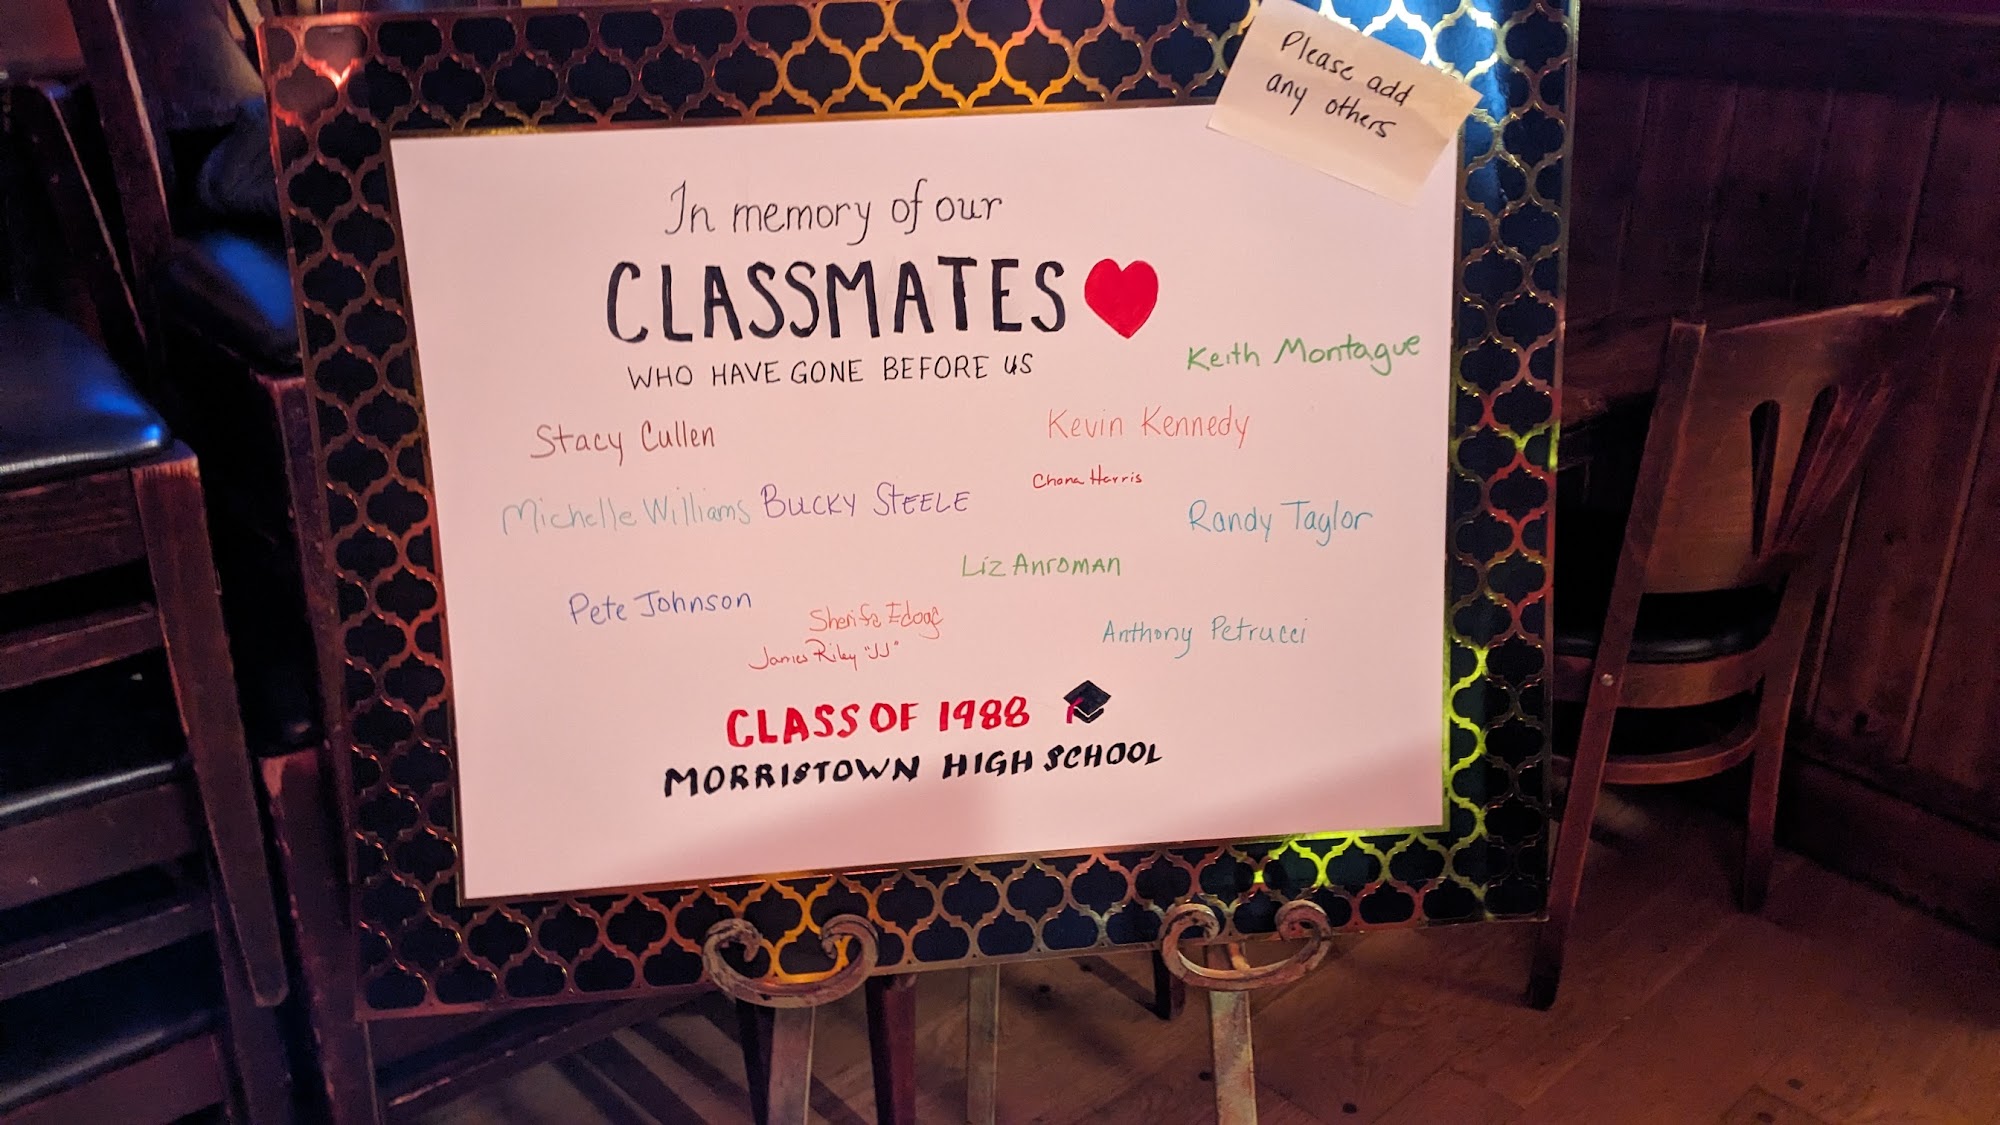 Please add
any others
In memory of our
CLASSMATES
WHO HAVE GONE BEFORE US
Keith Montague
Stacy Cullen
Kevin Kennedy
Chana Harris
Michelle Williams
BUCKY STEELE
Randy Taylor
Liz Anroman
Pete Johnson
Sherifa Edoga
James Riley "JJ"
Anthony Petrucci
CLASS OF 1988
MORRISTOWN HIGH SCHOOL